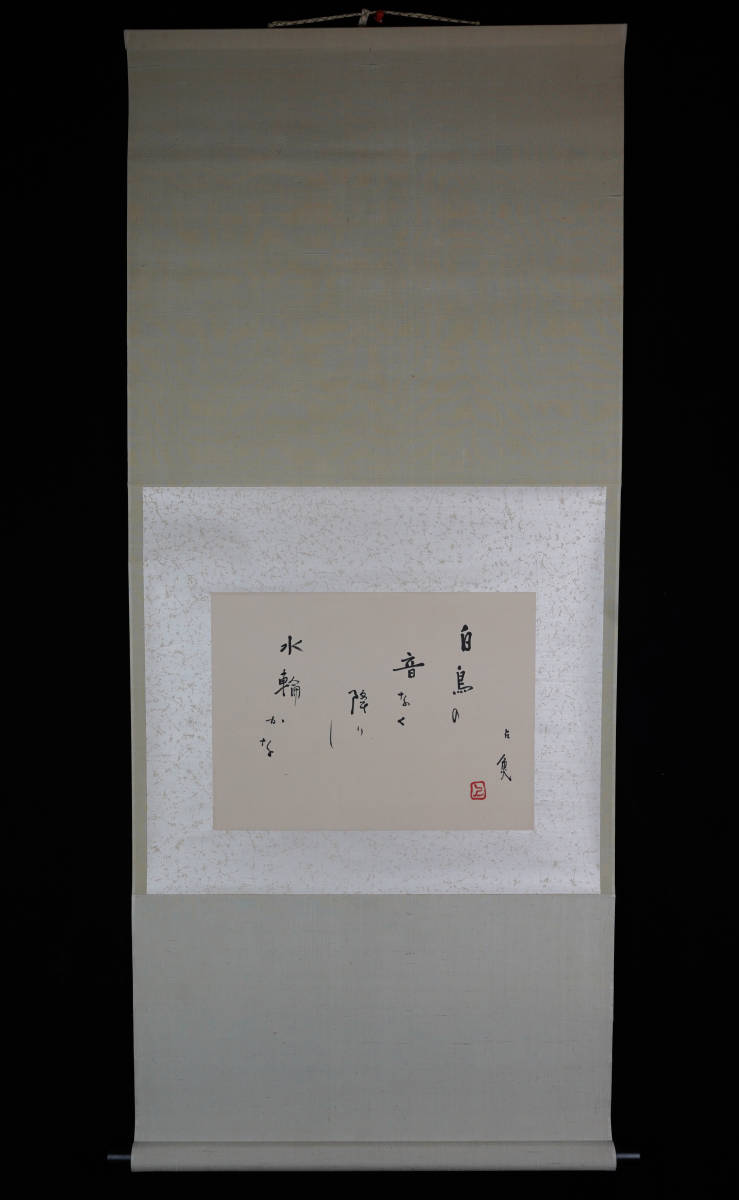 白鳥の
音なく
降り
し
水輪かな